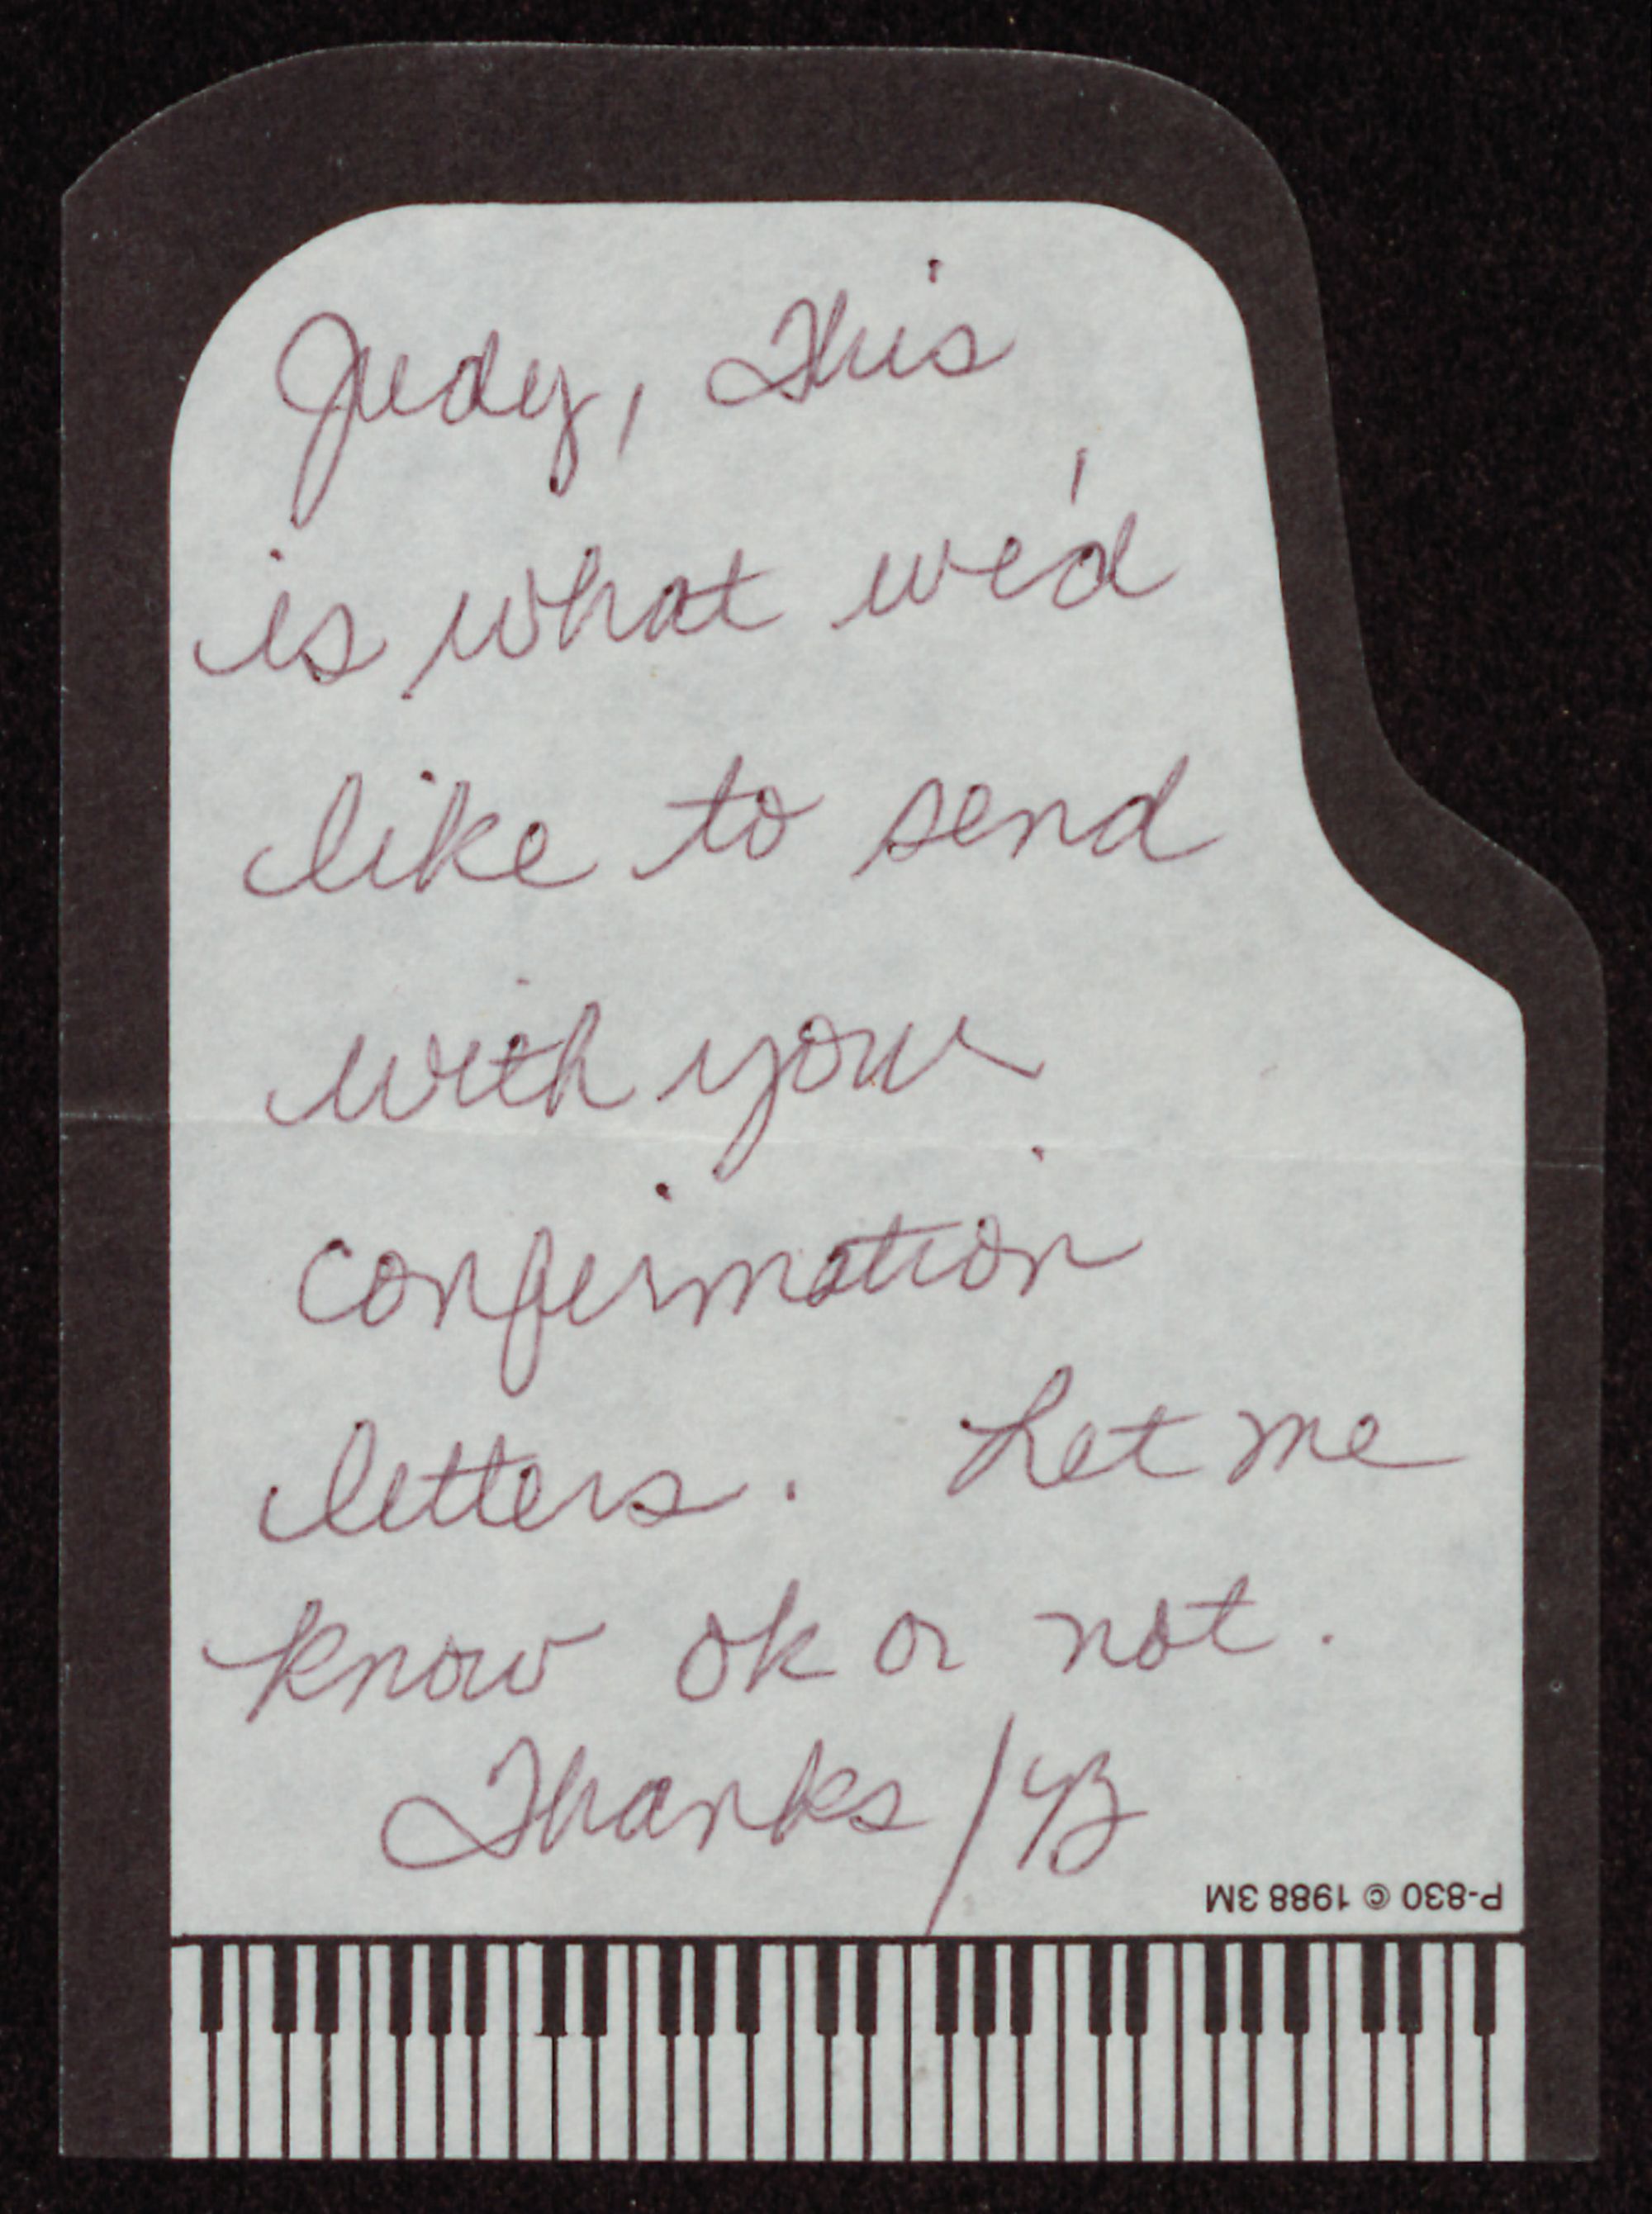 Judy, This
is what we'd
like to send
with your
confirmation
letters. Let me
know ok or not.
Thanks /
P-830 © 1988 3M